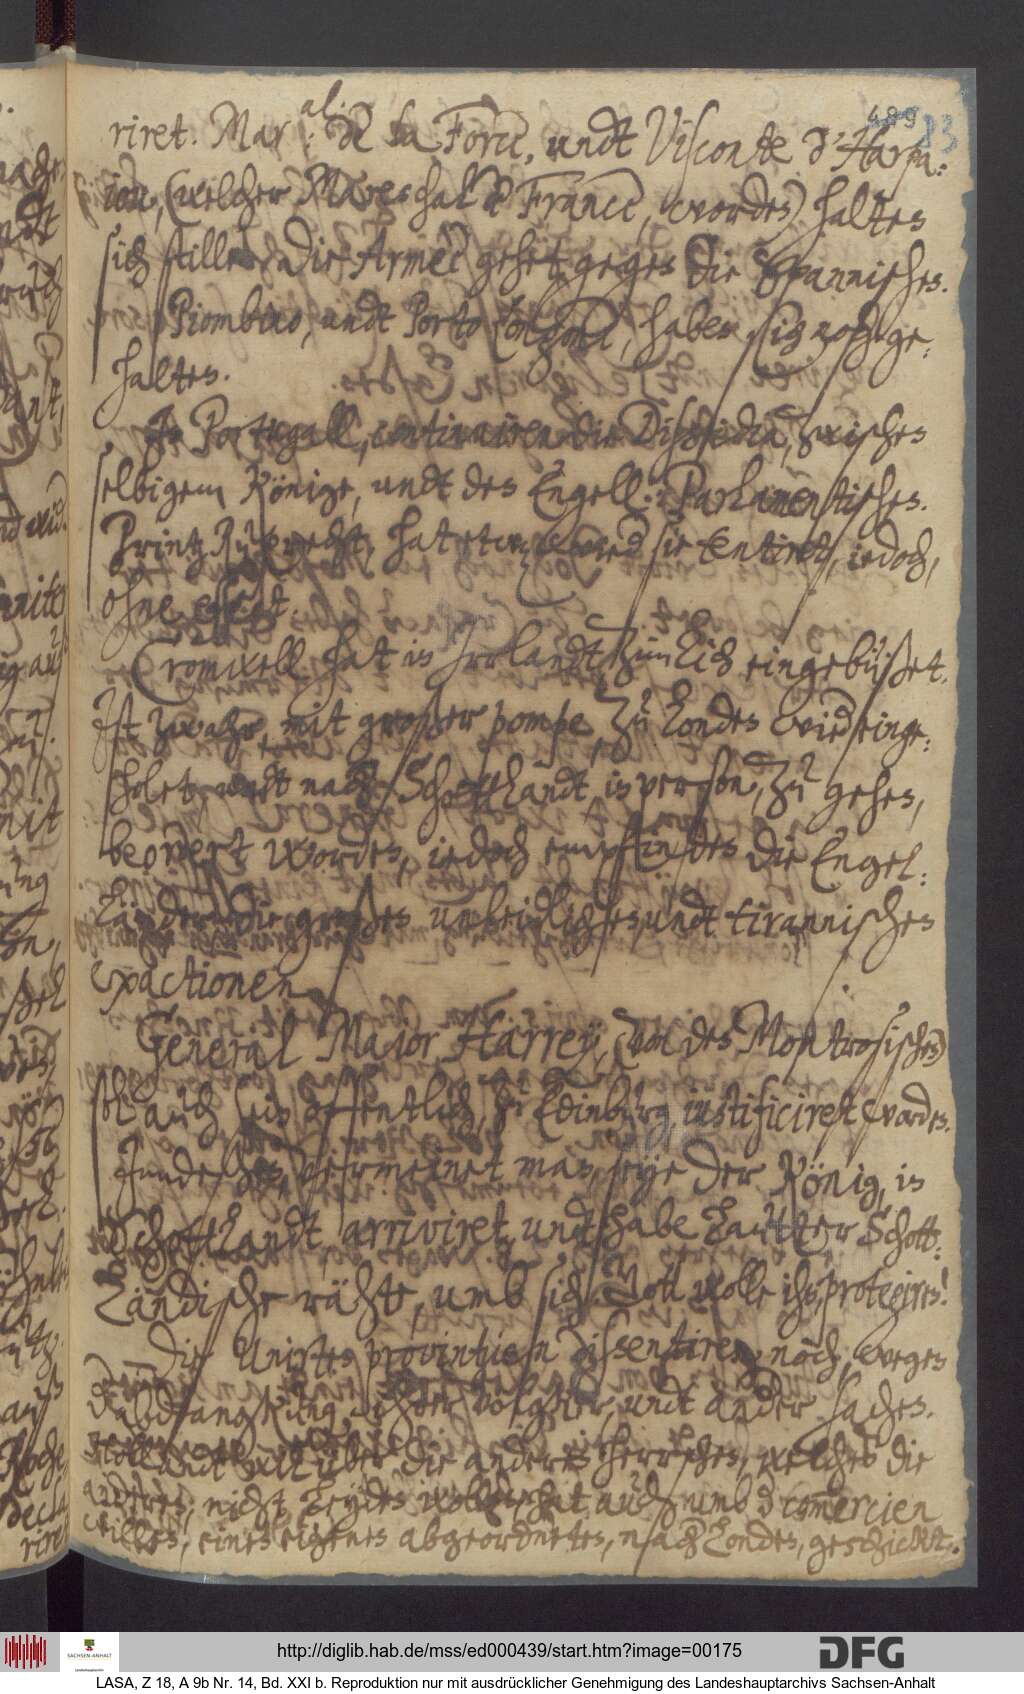 489 83
riret. Mar:al de la Force, undt Visconte d'Harpa:
ion, (welcher Mareschal de France, worden) halten
sich stille. Die Armèe gehet gegen die Spannischen.
Piombino, undt Porto Longone, haben sich noch ge:
halten.
In Portugall, continuiren die Dissidia, zwischen
selbigem Könige, undt den Engell: Parlamentischen.
Printz Ruprecht, hat etwaß wied sie tentiret, iedoch,
ohne effect.
Cromwell hat in Irrlandt zimlich eingebüßet.
Ist zwahr, mit großer pompe, zu Londen wied einge:
holet, undt nach Schottlandt, in person, zu gehen,
beordert worden, iedoch empfinden die Engel:
länder die großen unleidlichen undt tirannischen
exactionen.
General Major Harrey, von den Montrosischen
sol auch sein öffentlich, zu Edinburg iustificiret worden.
Jn deßen, vermeinet man, seye der König, in
Schottlandt, arriviret, undt habe lautter Schott:
ländische rähte, umb sich. Gott wolle ihn, protegiren!
Die Unirten provintzien dissentiren noch, wegen
Abdanckung ihrer völcker, undt ander sachen.
Hollandt will über die anderen herrschen, welches die
anderen, nicht, leyden wollen, hat auch umb d comercien
willen, einen eigenen abgeordneten, nach Londen, geschickt.
http://diglib.hab.de/mss/ed000439/start.htm?image=00175
SACHSEN-ANHALT
DFG
LASA, Z 18, A 9b Nr. 14, Bd. XXI b. Reproduktion nur mit ausdrücklicher Genehmigung des Landeshauptarchivs Sachsen-Anhalt